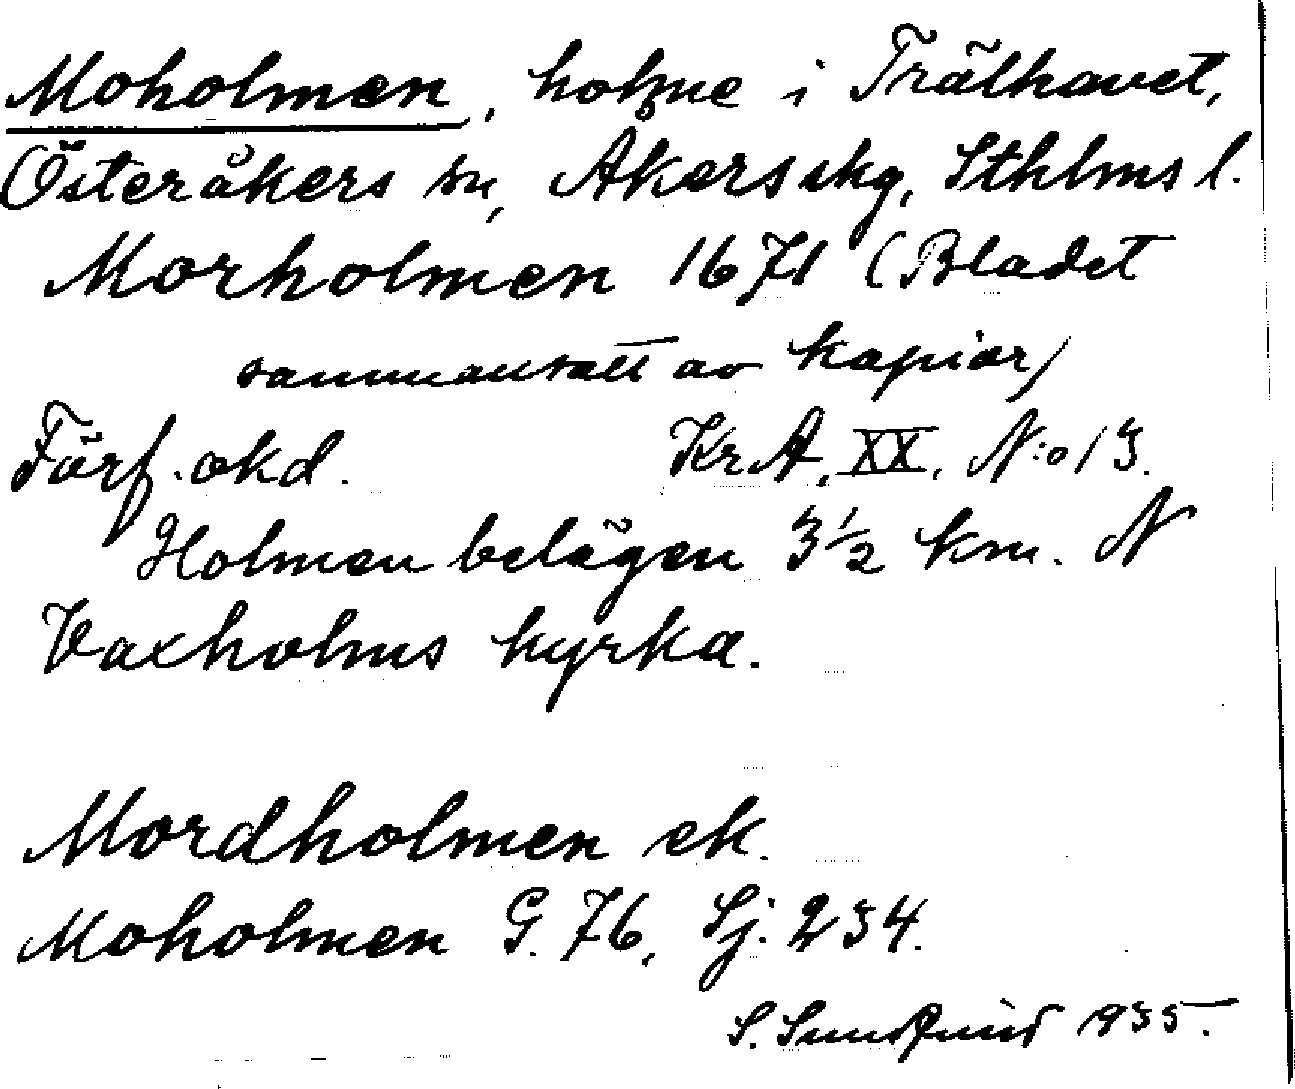 Moholmen, holme i Trälhavet,
Österåkers sn, Åkers skg, Sthlms l.
Morholmen 1671 (Bladet
sammansatt av kopior)
Förf. okd. KrA, XX, N:o 13.
Holmen belägen 3 1/2 km. N
Vaxholms kyrka.
Mordholmen ek.
Moholmen G. 76, Sj. 234.
S. Sundquist 1935.